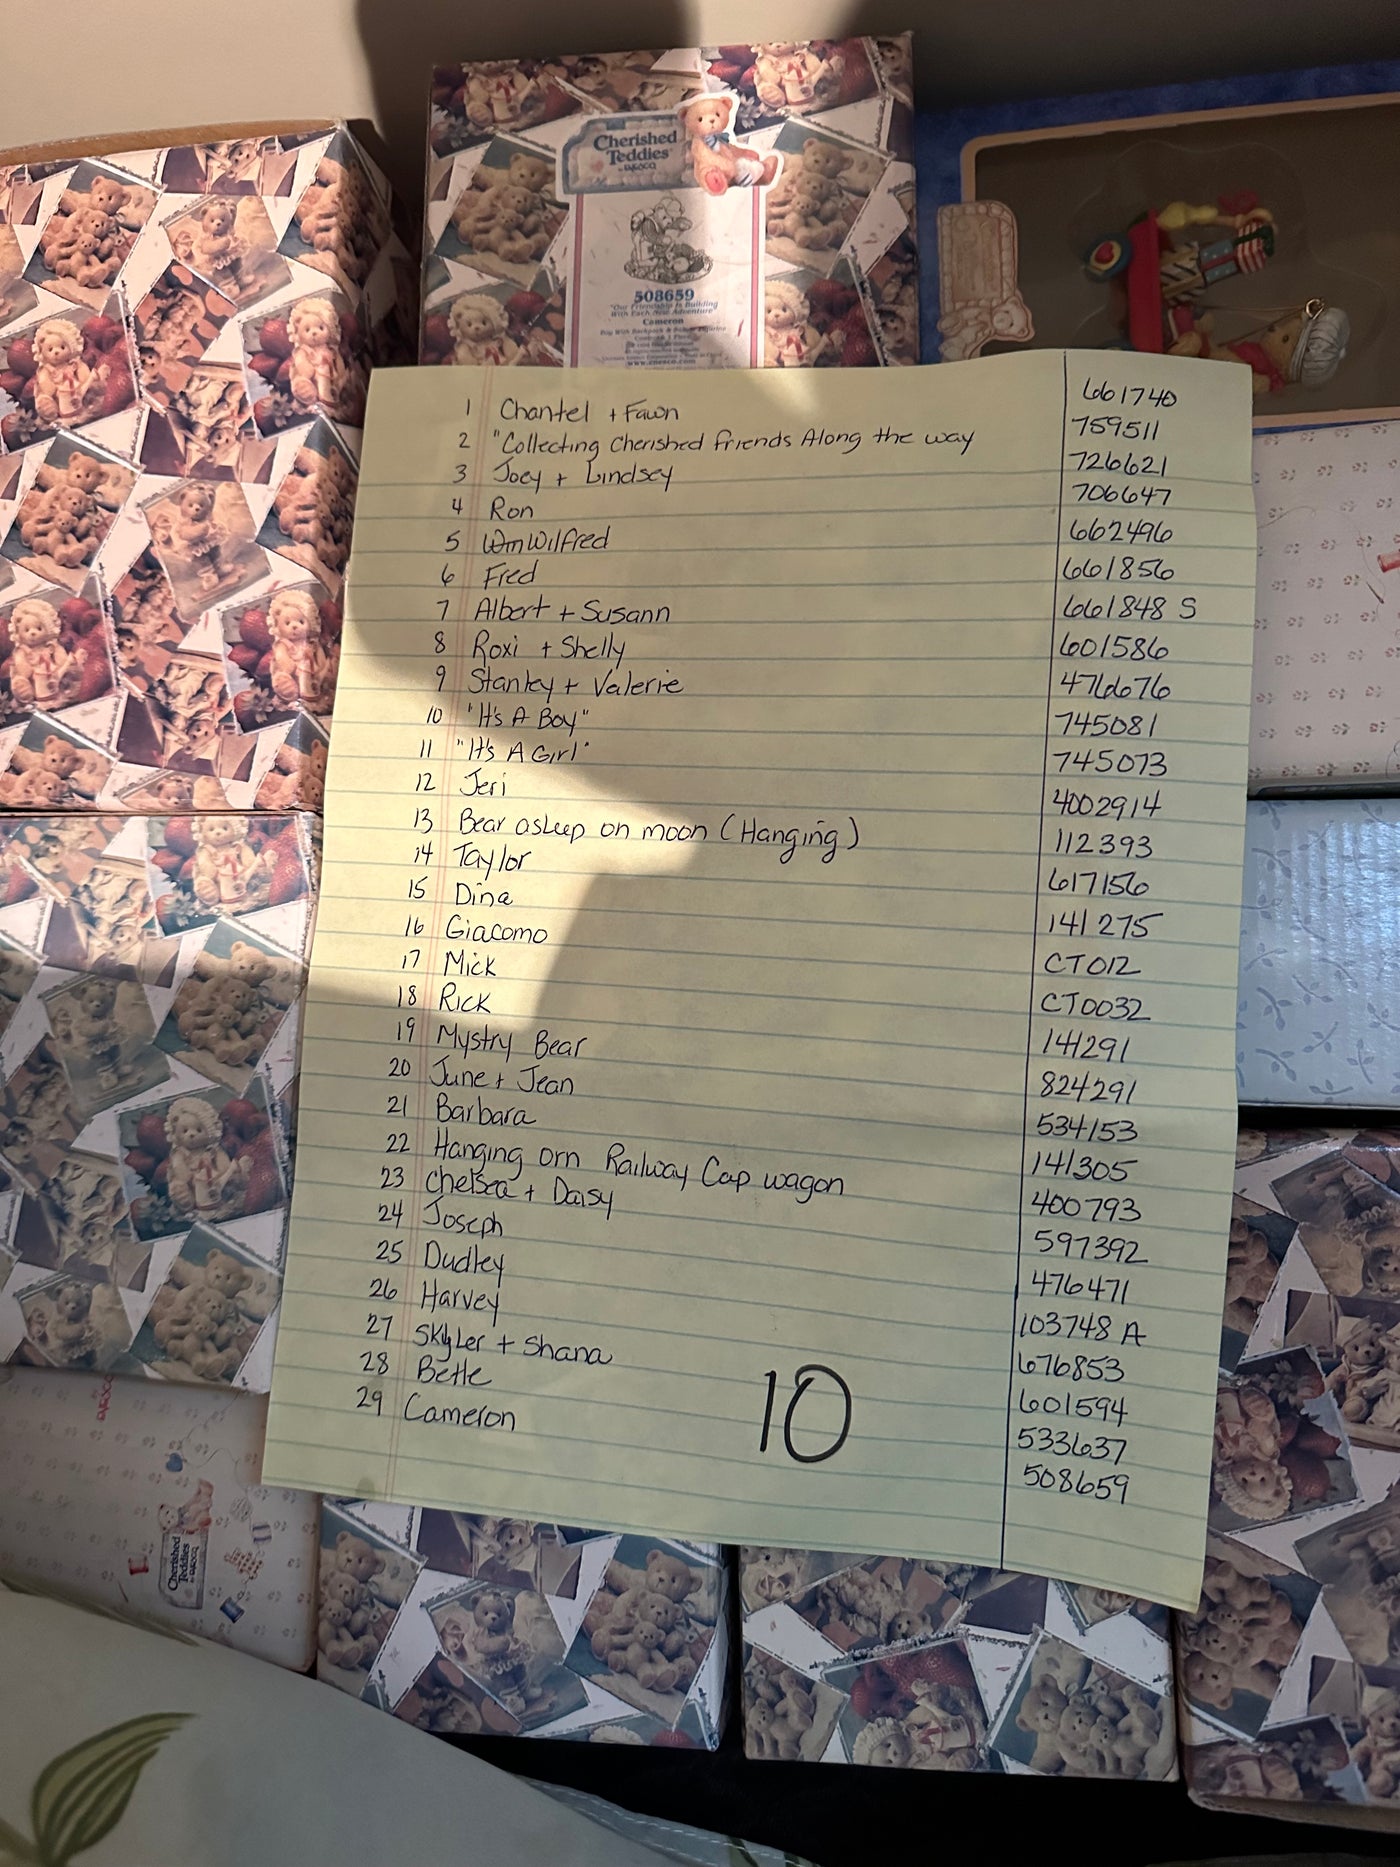 Cherished
Teddies
ENESCO
508659
"Our Friendship Is Building
With Each New Adventure"
Cameron
www.enesco.com
1 Chantel + Fawn 661740
2 "Collecting Cherished friends Along the way 759511
3 Joey + Lindsey 726621
4 Ron 706647
5 Wm Wilfred 662496
6 Fred 661856
7 Albert + Susann 661848 S
8 Roxi + Shelly 601586
9 Stanley + Valerie 476676
10 "It's A Boy" 745081
11 "It's A Girl" 745073
12 Jeri 4002914
13 Bear asleep on moon (Hanging) 112393
14 Taylor 617156
15 Dina 141275
16 Giacomo CT012
17 Mick CT0032
18 Rick 141291
19 Mystry Bear 824291
20 June + Jean 534153
21 Barbara 141305
22 Hanging orn Railway Cap wagon 400793
23 Chelsea + Daisy 597392
24 Joseph 476471
25 Dudley 103748 A
26 Harvey 676853
27 Skyler + Shana 601594
28 Bette 533637
29 Cameron 508659
10
Cherished
Teddies
ENESCO